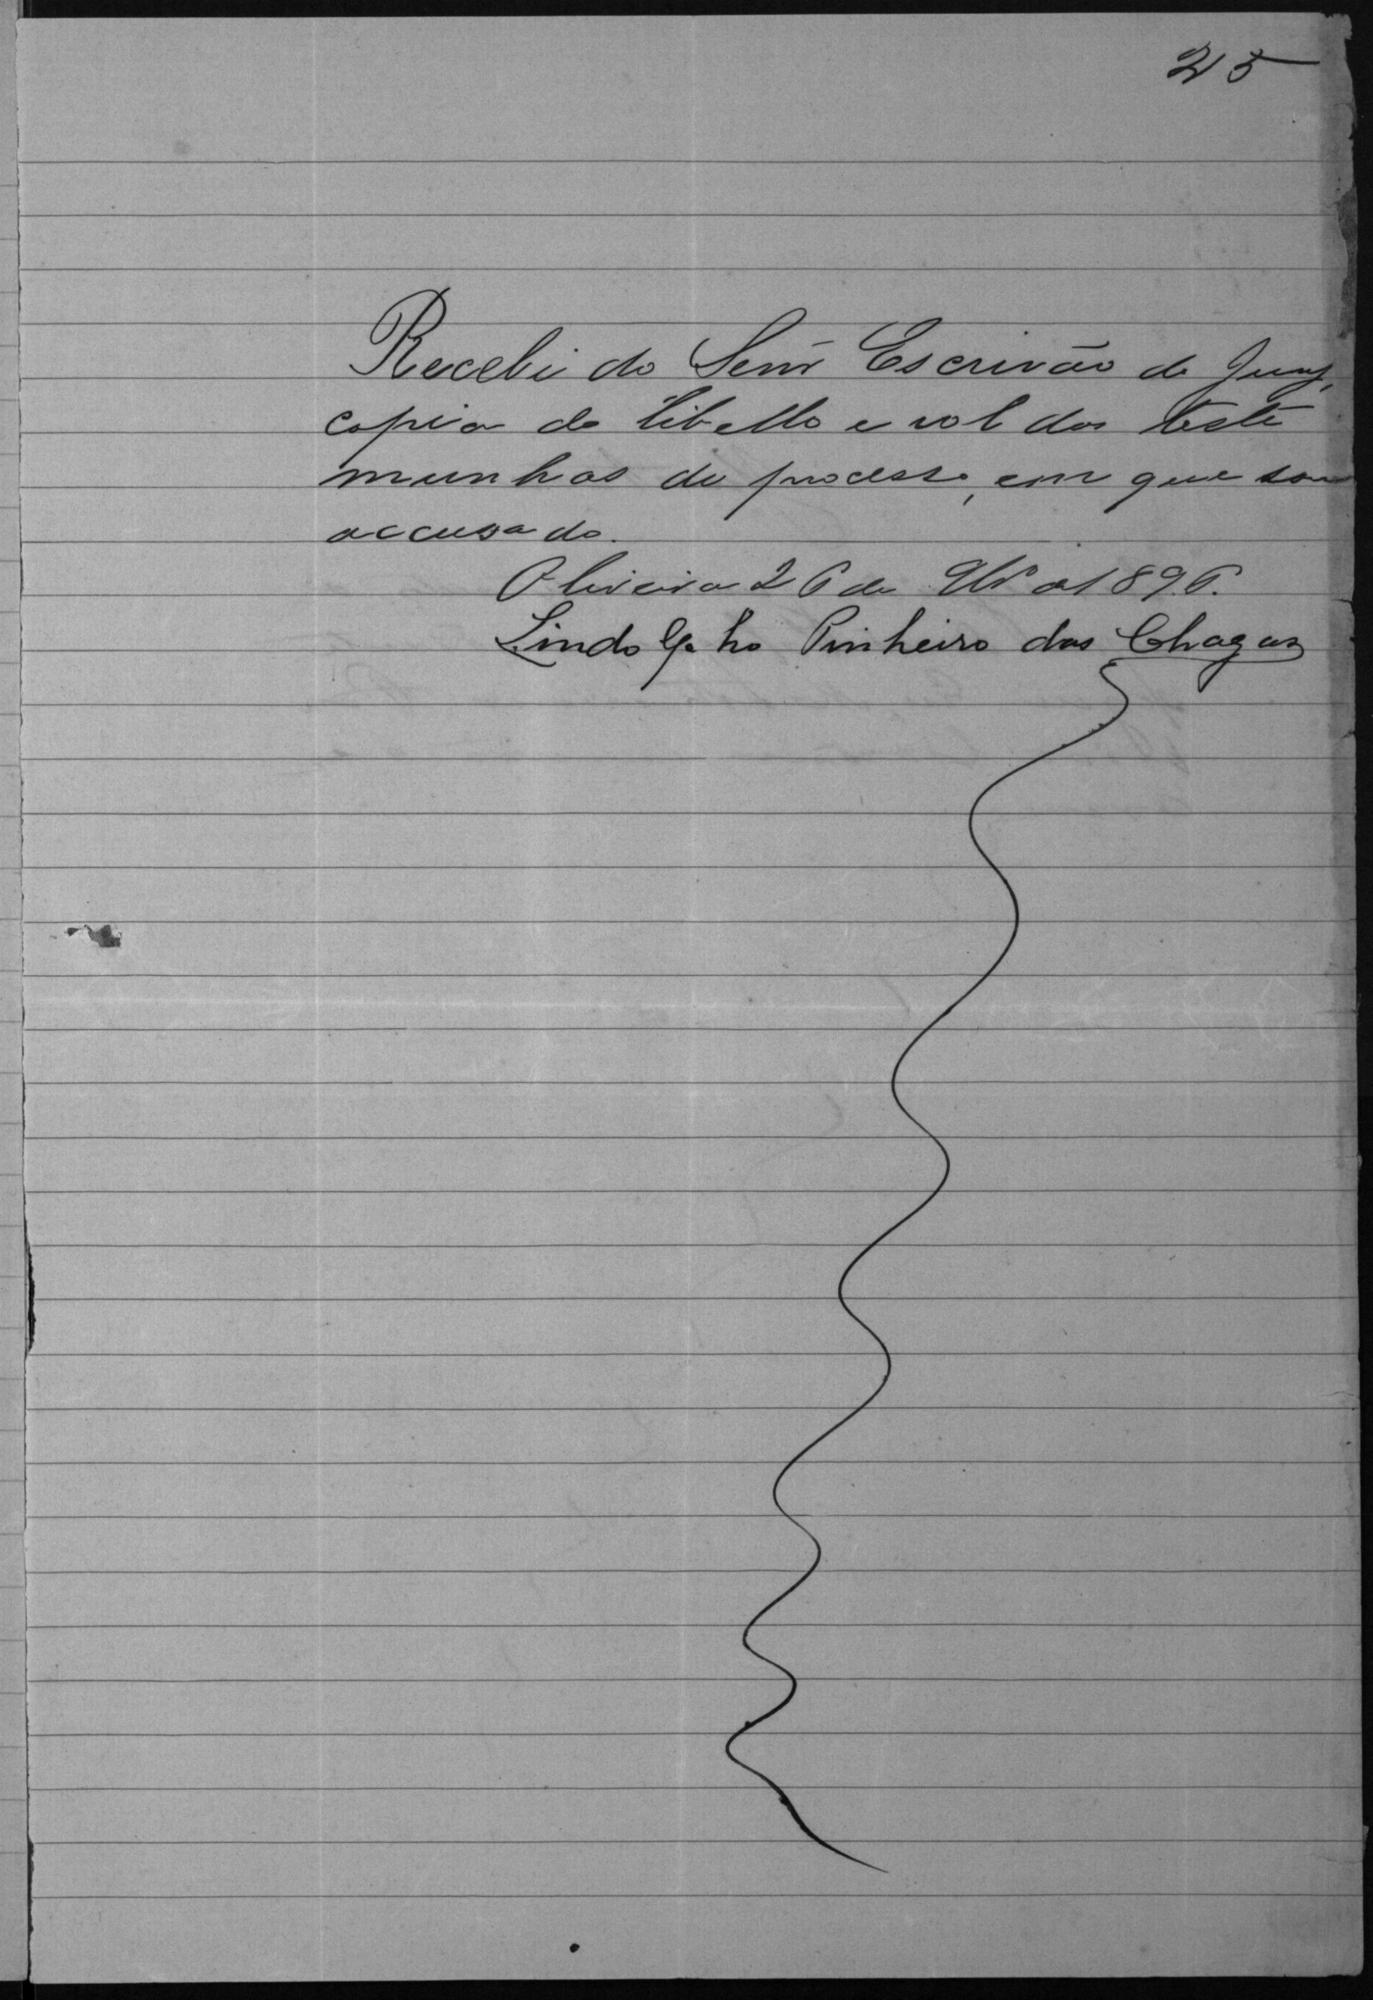 25
Recebi do Senr Escrivão do Jury,
copia do libello e rol das teste
munhas do processo, em que sou
accusado.
Oliveira 26 de 9br de 1896.
Lindolpho Pinheiro das Chagas